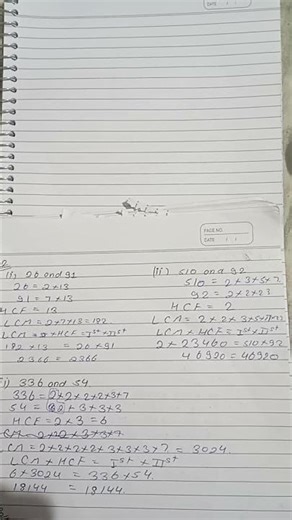 DATE
PAGE NO.
DATE
2
(i) 26 and 91
26 = 2 × 13
91 = 7 × 13
HCF = 13
LCM = 2×7×13 = 182
LCM × HCF = Ist × IIst
182 × 13 = 26 × 91
2366 = 2366
(ii) 510 and 92
510 = 2×3×5×17
92 = 2×2×23
HCF = 2
LCM = 2×2×3×5×17×23
LCM × HCF = Ist × IIst
2 × 23460 = 510 × 92
46920 = 46920
i) 336 and 54
336 = 2×2×2×2×3×7
54 = 2×3×3×3
HCF = 2×3 = 6
CM = 2×2×2×2×3×3×3×7 = 3024
LCM × HCF = Ist × IIst
6 × 3024 = 336 × 54
18144 = 18144